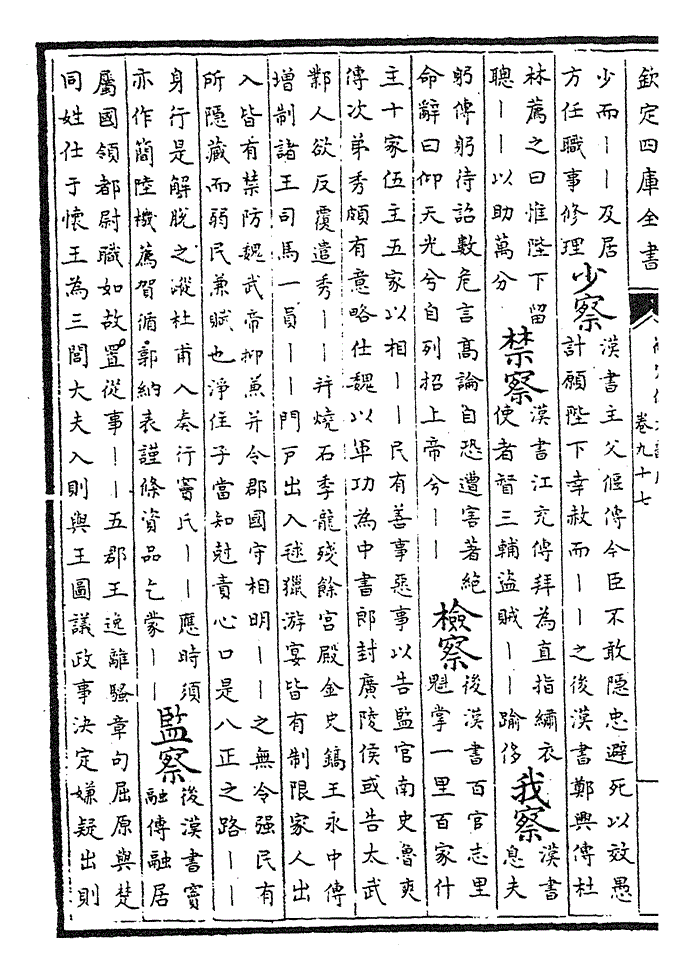 欽定四庫全書
卷九十七
少而丨丨及居
方任職事修理
少察
漢書主父偃傳今臣不敢隱忠避死以效愚
計願陛下幸赦而丨丨之後漢書鄭興傳杜
林薦之曰惟陛下留
聰丨丨以助萬分
禁察
漢書江充傳拜為直指繡衣
使者督三輔盜賊丨丨踰侈
我察
漢書
息夫
躬傳躬待詔數危言高論自恐遭害著絶
命辭曰仰天光兮自列招上帝兮丨丨
檢察
後漢書百官志里
魁掌一里百家什
主十家伍主五家以相丨丨民有善事惡事以告監官南史魯爽
傳次弟秀頗有意略仕魏以軍功為中書郎封廣陵侯或告太武
鄴人欲反覆遣秀丨丨并燒石季龍殘餘宮殿金史鎬王永中傳
增制諸王司馬一員丨丨門戸出入毬獵游宴皆有制限家人出
入皆有禁防魏武帝抑兼并令郡國守相明丨丨之無令强民有
所隱藏而弱民兼賦也淨住子當知尅責心口是八正之路丨丨
身行是解脫之蹤杜甫入奏行竇氏丨丨應時須
亦作簡陸機薦賀循郭納表謹條資品乞蒙丨丨
監察
後漢書竇
融傳融居
屬國領都尉職如故置從事丨丨五郡王逸離騷章句屈原與楚
同姓仕于懷王為三閭大夫入則與王圖議政事決定嫌疑出則